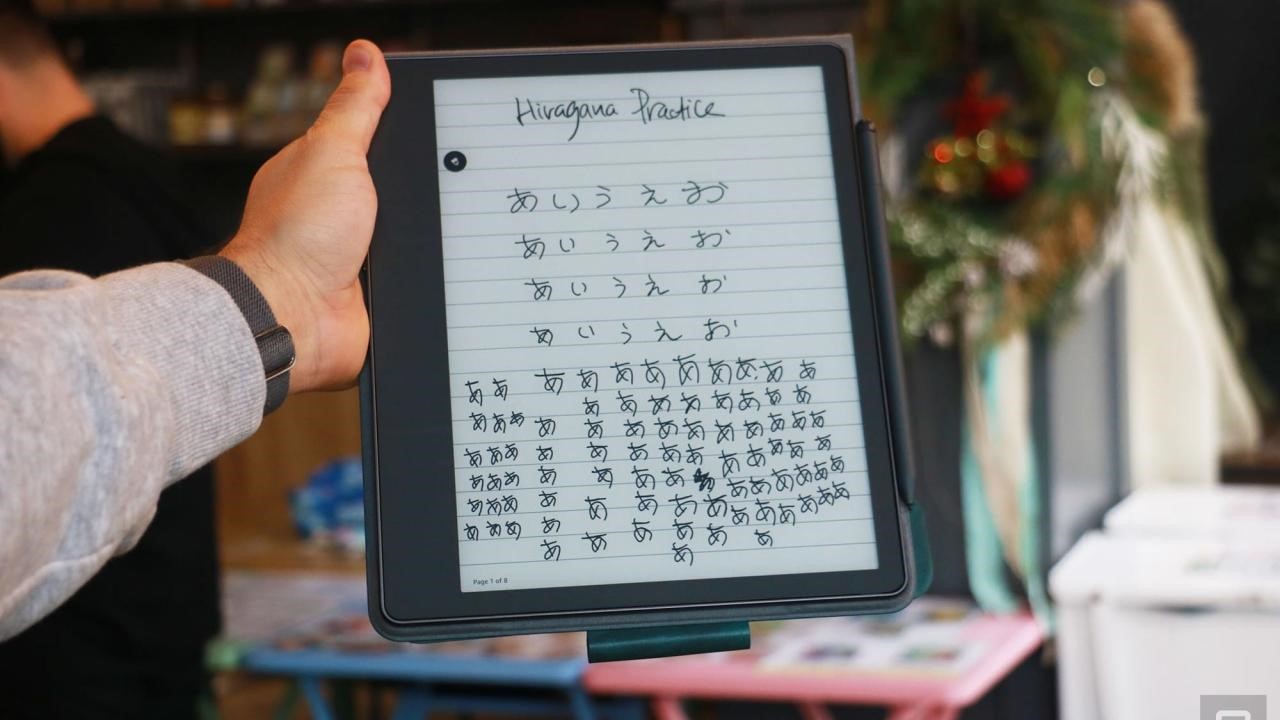 Hiragana Practice
あいうえお
あいうえお
あいうえお
あいうえお
あああああああああああ
ああああああああ
あああああああああああああ
あああああああああああああ
あああああああああああああ
ああああああああああああああ
あああああああああ
ああ
Page 1 of 8